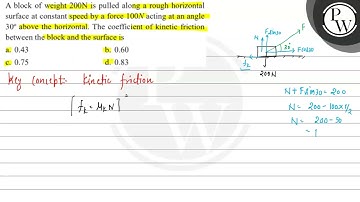 A block of weight 200N is pulled along a rough horizontal
surface at constant speed by a force 100N acting at an angle
30° above the horizontal. The coefficient of kinetic friction
between the block and the surface is
a. 0.43 b. 0.60
c. 0.75 d. 0.83
Key concept: Kinetic friction
[fk = μkN]
N Fsin30 F
30° Fcos30
fk
200N
N + Fsin30 = 200
N = 200 - 100×1/2
N = 200-50
=